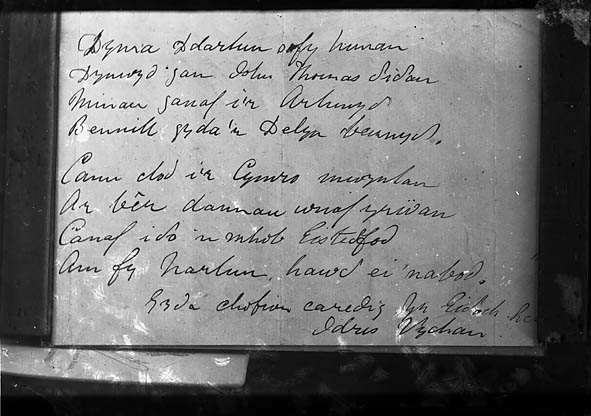 Dyma Ddarlun o fy hunan
Dynwyd gan John Thomas diddan
Minau ganaf i'r Arlunydd
Bennill gyda'r Delyn beunydd.
Canu clod i'r Cymro mwynlan
Ar bêr dannau wnaf yrŵan
Canaf ido 'n mhob Eistedfod
Am fy narlun, hawd ei 'nabod.
Gyda chofion caredig Yr Eidoch &c
Idris Vychan